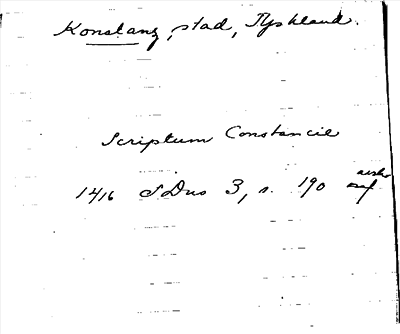 Konstanz, stad, Tyskland.
Scriptum Constancie
1416 SDns 3, s. 190 avskr